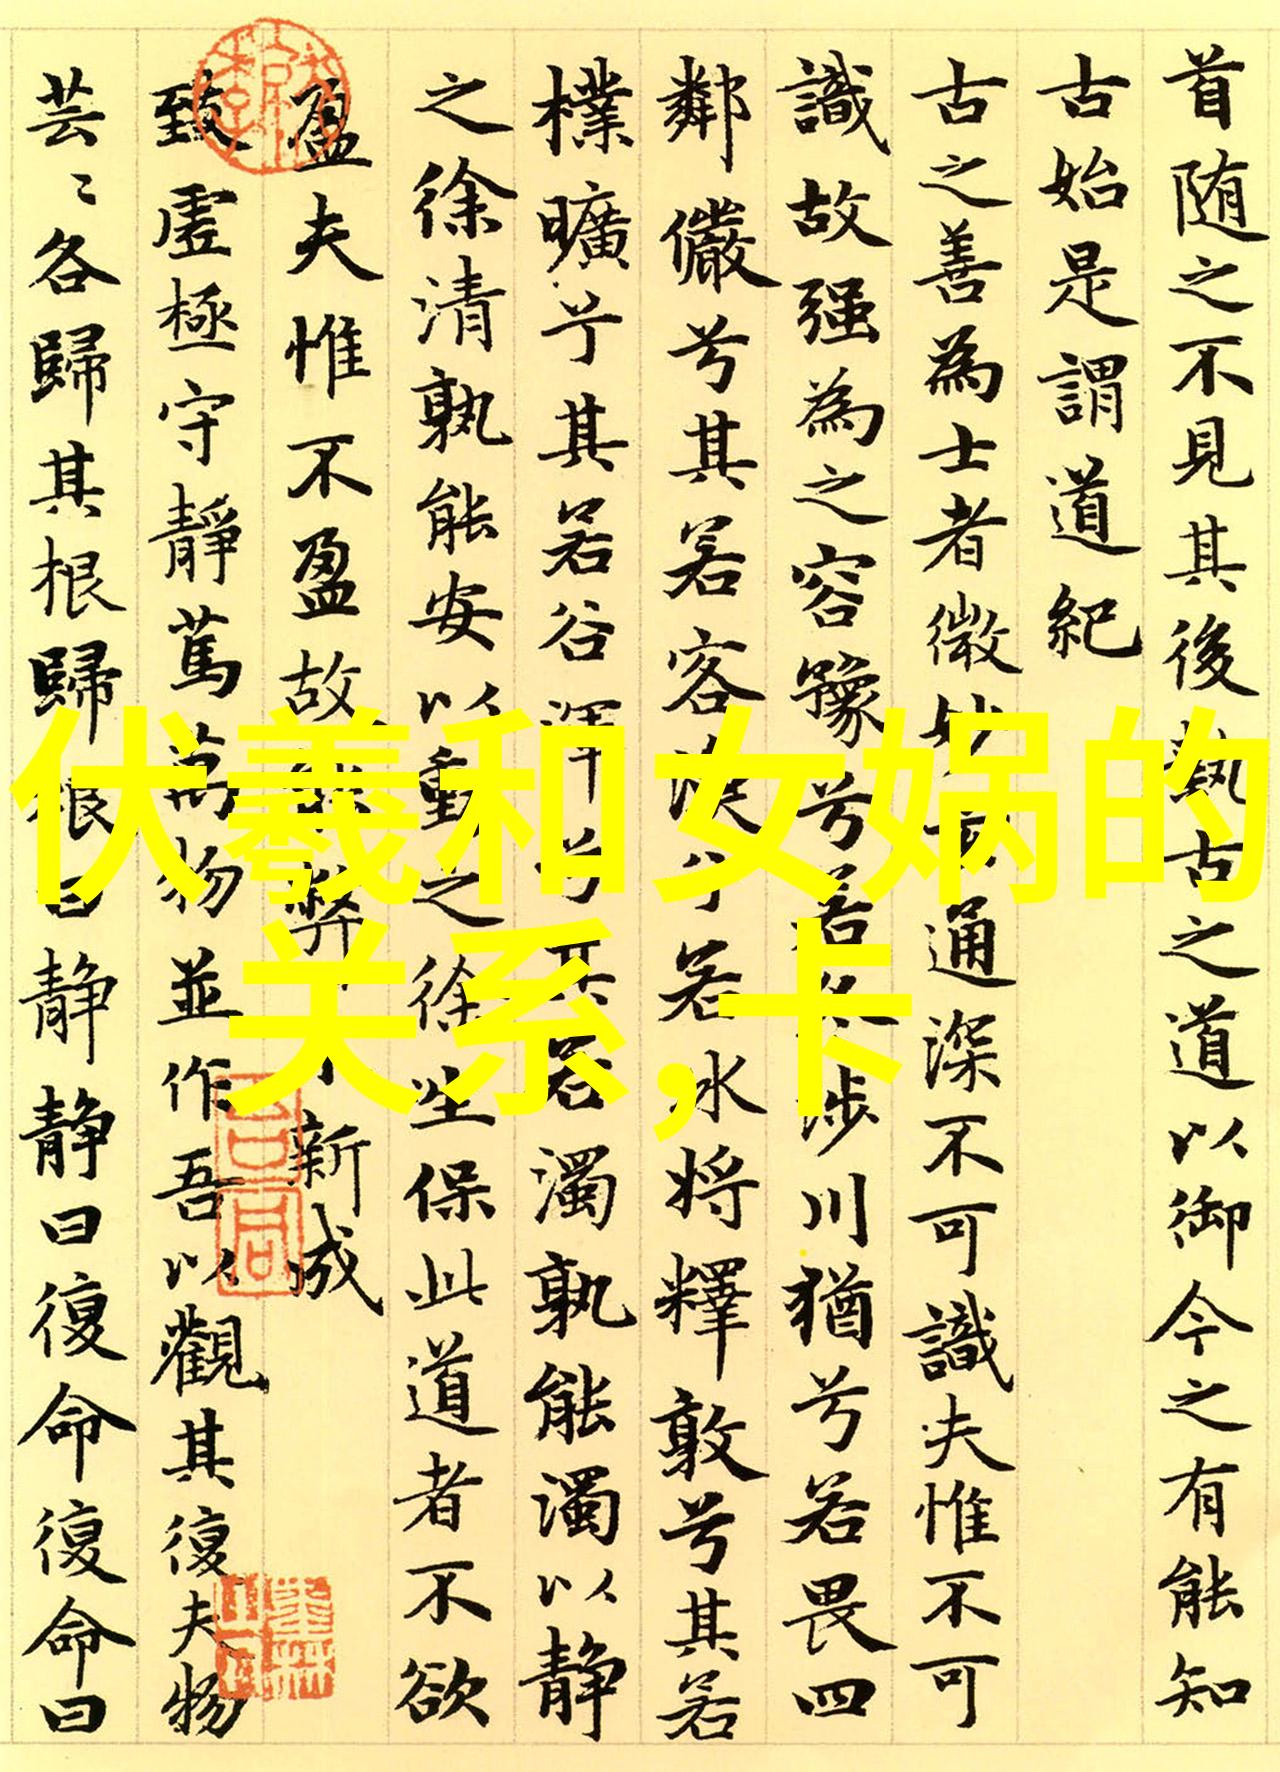 首随之不見其後執古之道以御今之有能知
古始是謂道紀
古之善為士者微妙通深不可識夫惟不可
識故强為之容豫兮若涉川猶兮若畏四
鄰儼兮其若客渙兮若冰将釋敦兮其若
樸曠兮其若谷渾兮其若濁孰能濁以静
之徐清孰能安以動之徐生保此道者不欲
盈夫惟不盈故弊新成
致虚極守靜篤萬物並作吾以觀其復夫物
芸〻各歸其根歸根曰静静曰復命復命曰
伏羲和女娲的
关系,卡